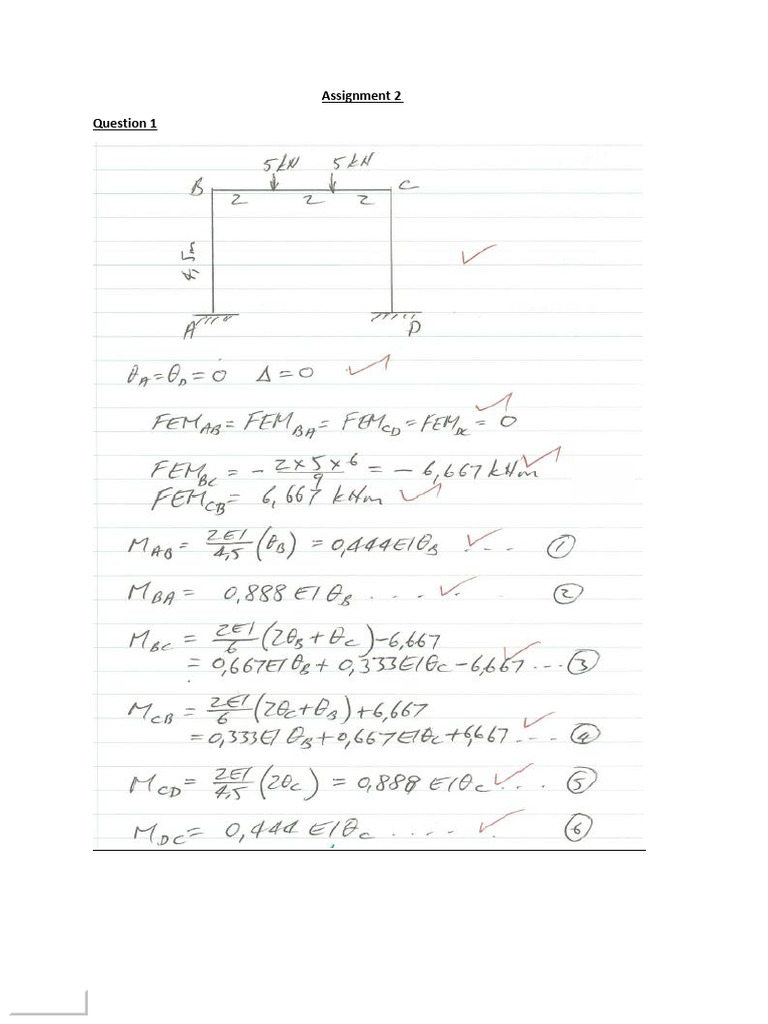 Assignment 2
Question 1
5kN 5kN
B 2 2 2 C
4,5m
A D
θA=θD=0 Δ=0
FEMAB=FEMBA=FEMCD=FEMDC=0
FEMBC = - 2×5×6/9 = - 6,667 kNm
FEMCB= 6,667 kNm
MAB= 2EI/4,5 (θB) = 0,444EIθB .... ①
MBA= 0,888 EIθB ..... ②
MBC = 2EI/6 (2θB+θC)-6,667
= 0,667EIθB+0,333EIθC-6,667 ... ③
MCB= 2EI/6 (2θC+θB)+6,667
=0,333EIθB+0,667EIθC+6,667 .... ④
MCD= 2EI/4,5 (2θC) = 0,888 EIθC .... ⑤
MDC= 0,444 EIθC ..... ⑥